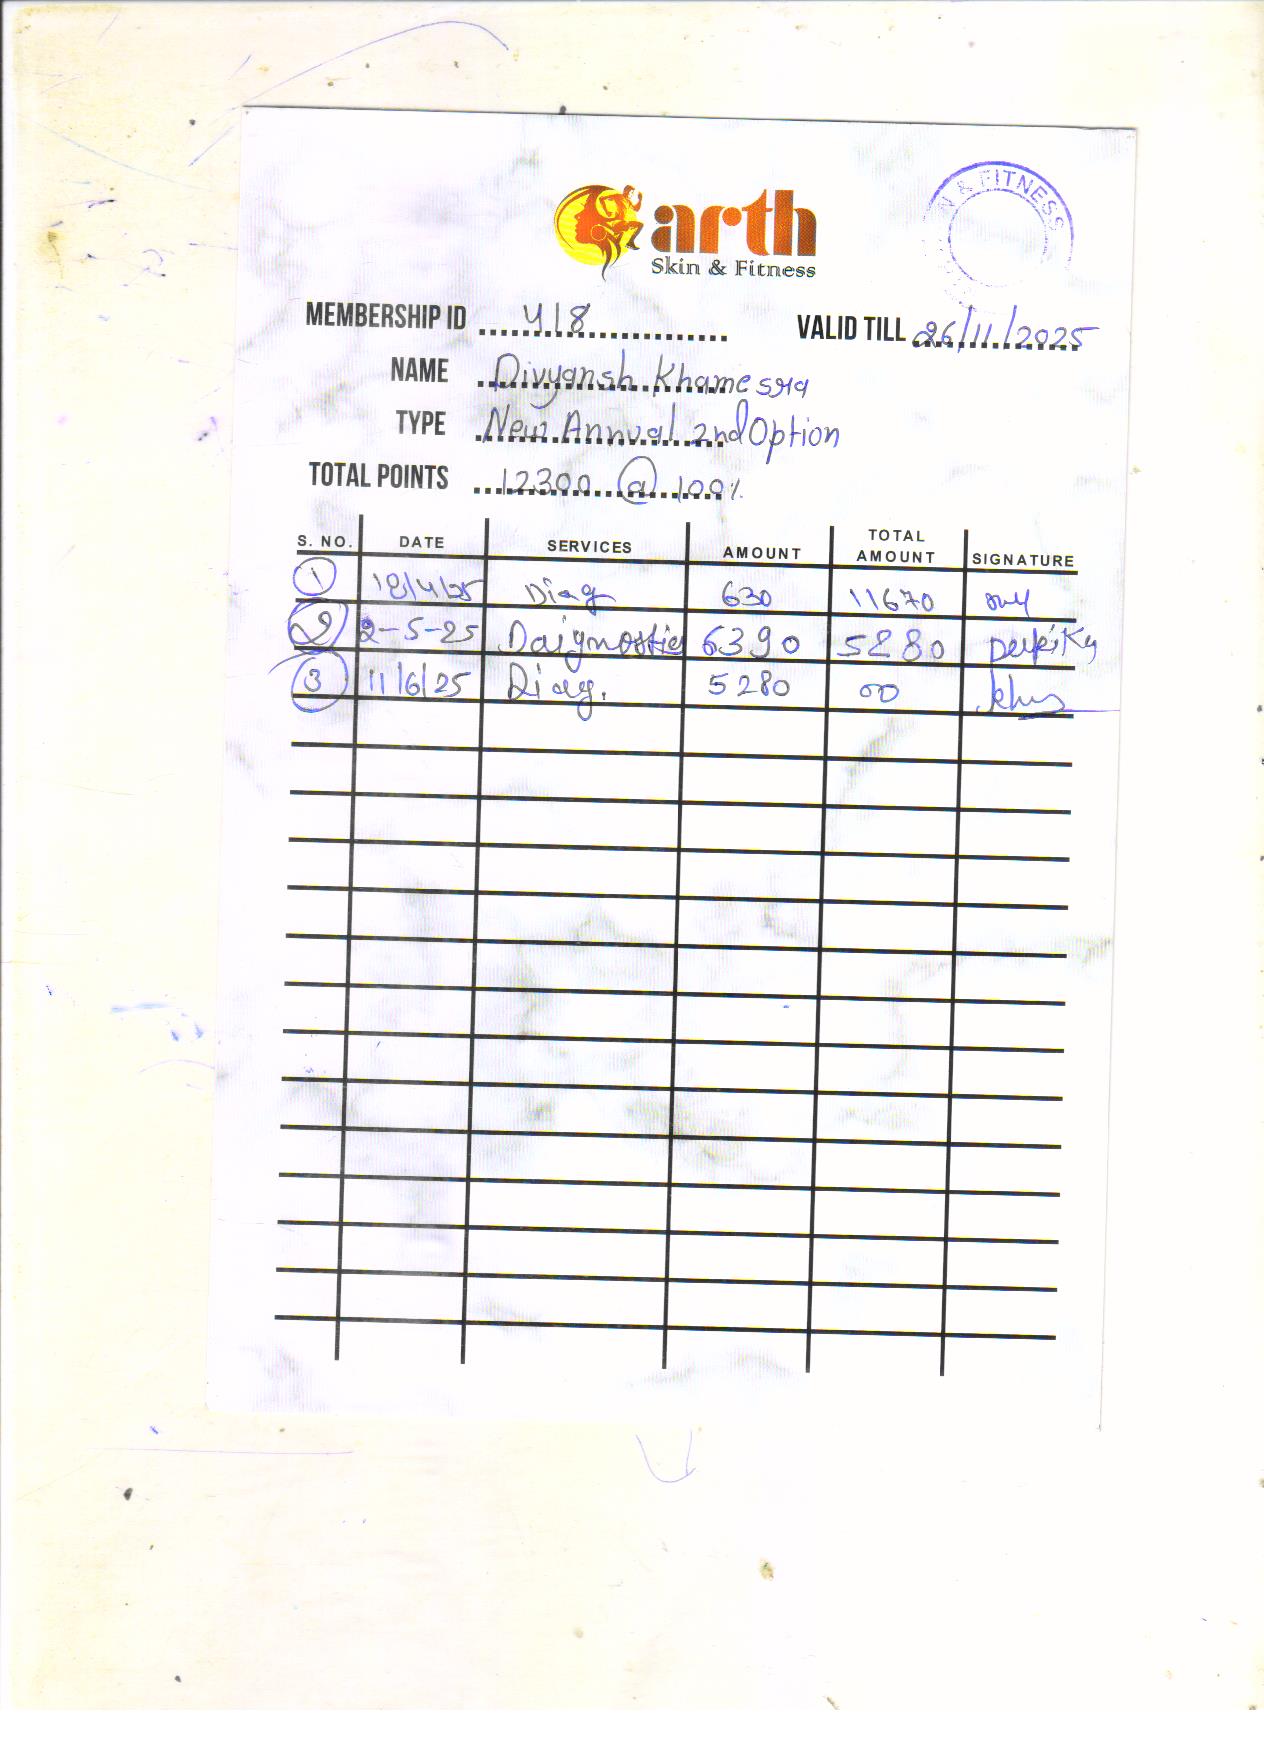 arth
Skin & Fitness
N & FITNESS
MEMBERSHIP ID 418
VALID TILL 26/11/2025
NAME Divyansh Khamesara
TYPE New Annual 2nd Option
TOTAL POINTS 12300 @ 100%
S. NO. DATE SERVICES AMOUNT TOTAL AMOUNT SIGNATURE
1 18/4/25 Diag 630 11670
2 2-5-25 Daignostic 6390 5280
3 11/6/25 Diag. 5280 00